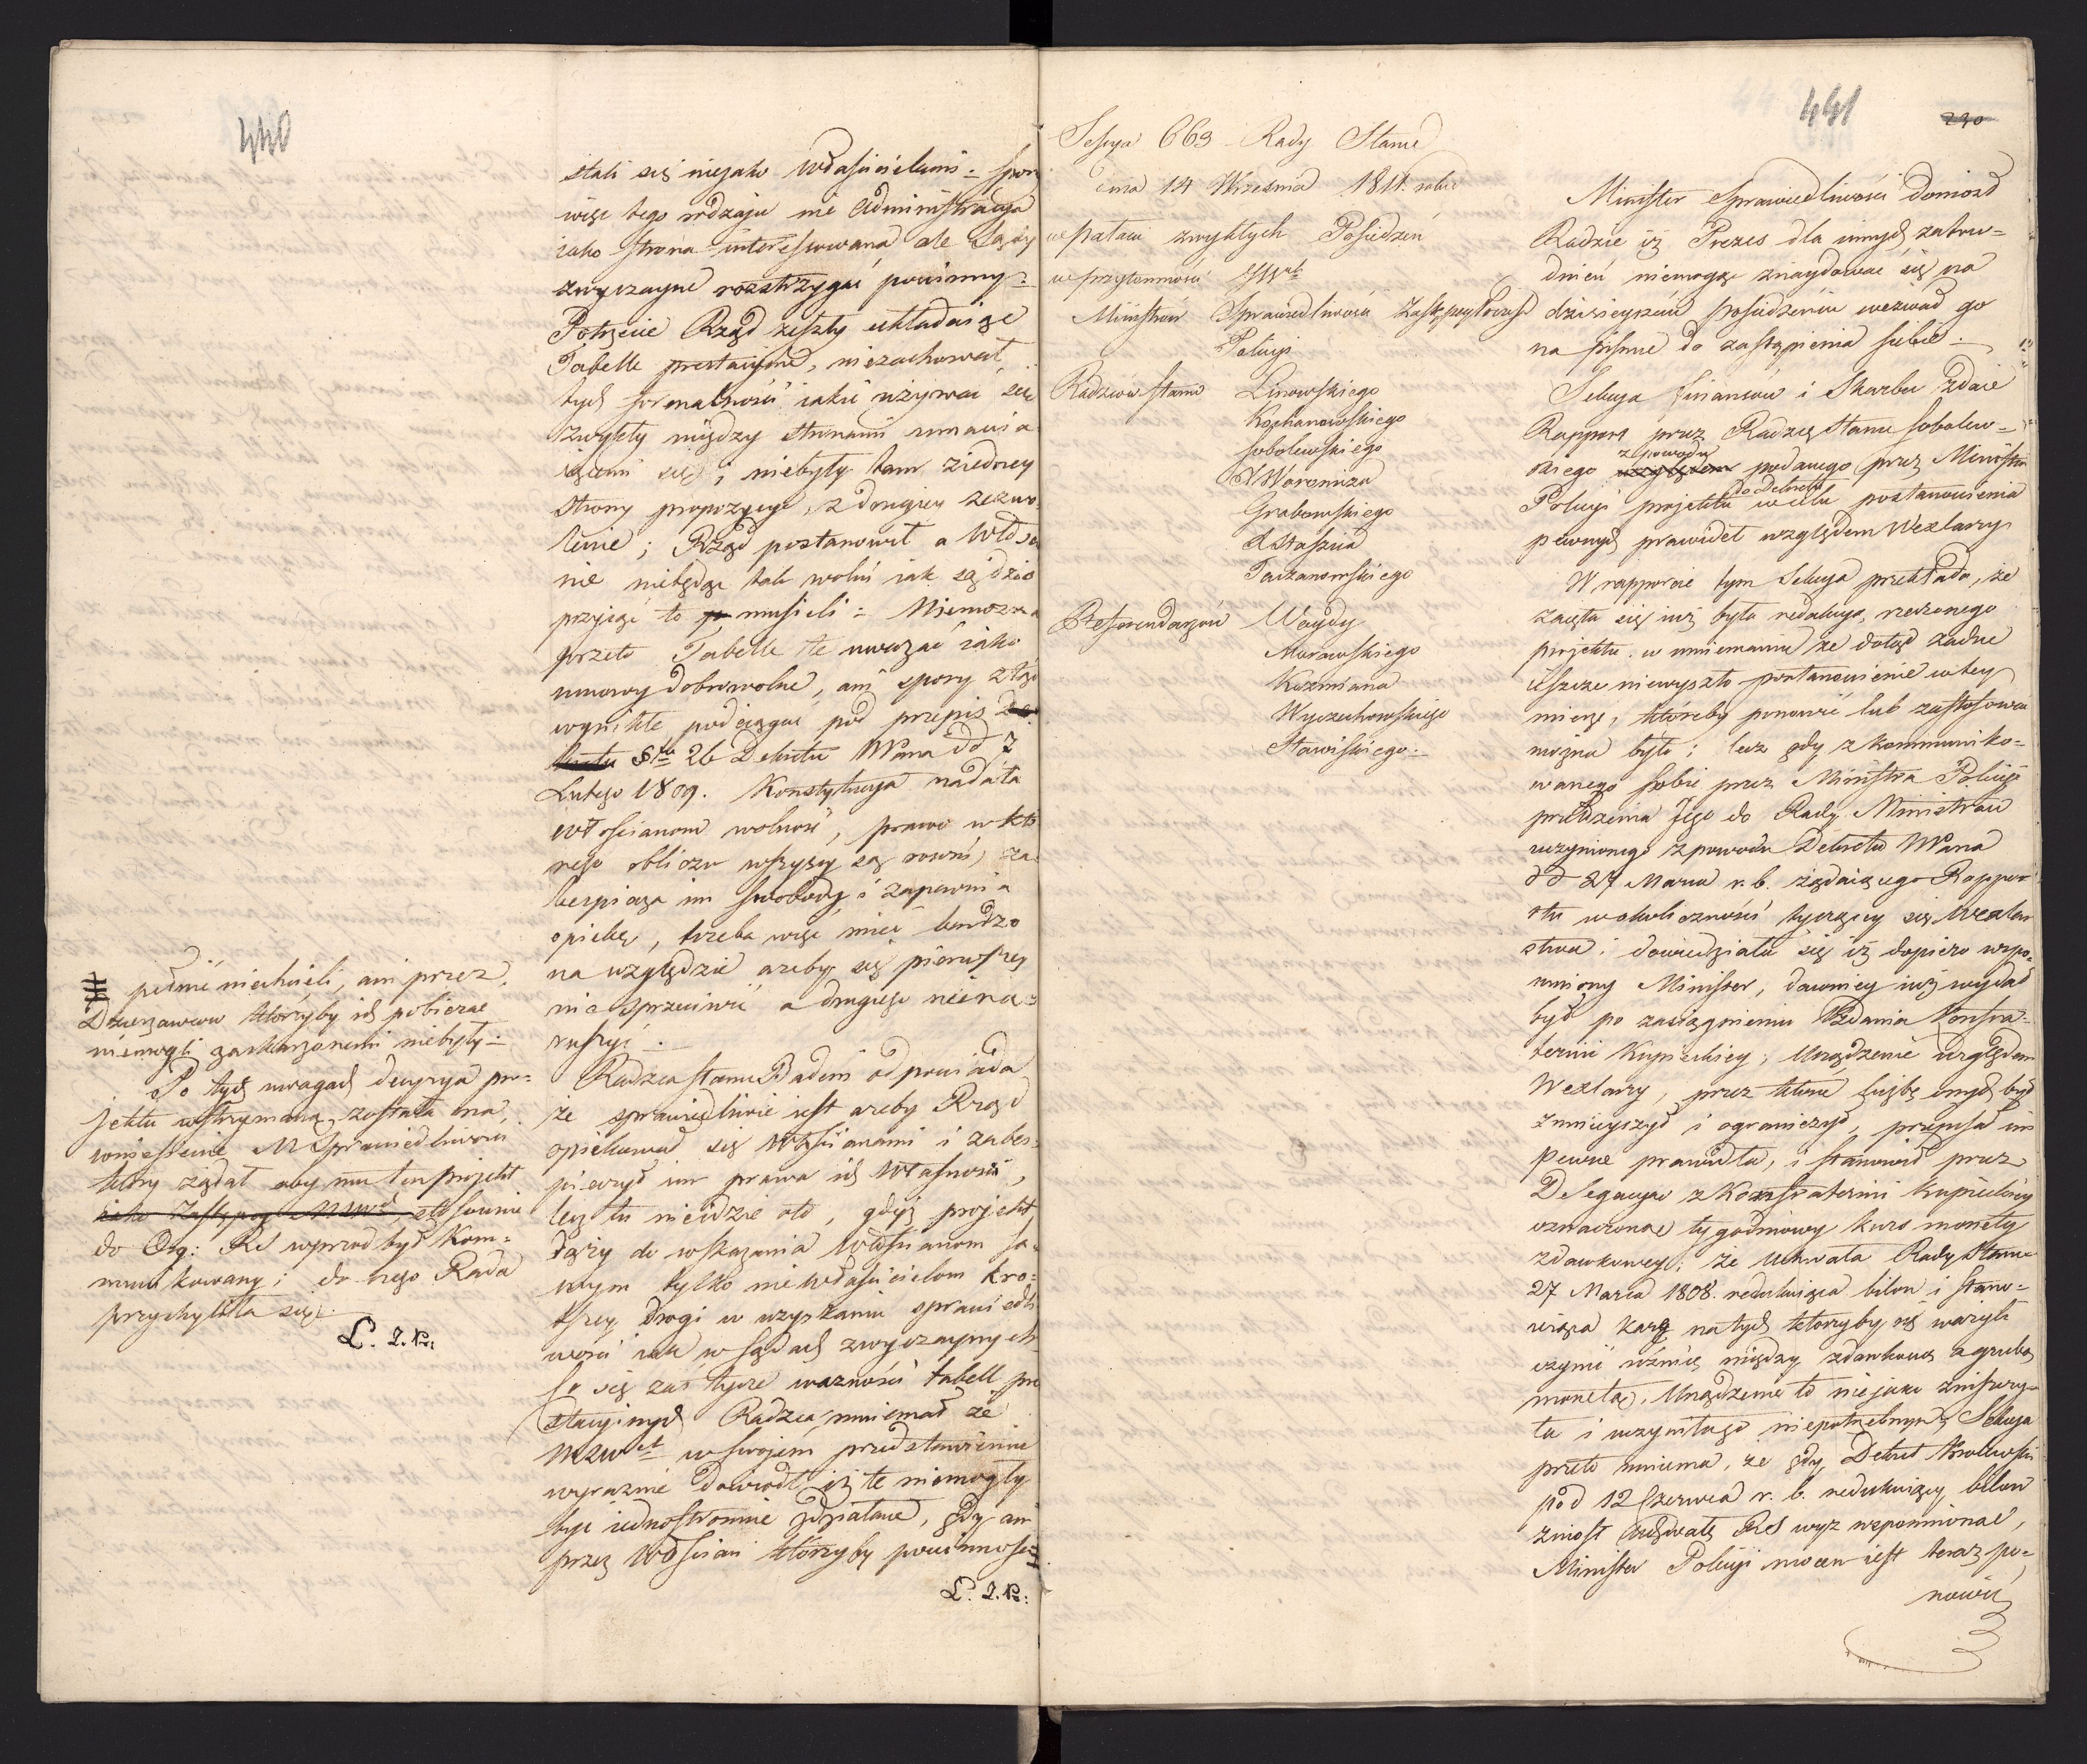 440
stali się niejako Właścicielami : spory
więc tego rodzaju nie Administracya
iako strona interessowana, ale Sądy
zwyczayne rozstrzygać powinny :
Potrzecie Rząd zeszły układaiąc
Tabelle prestacyine, niezachował
tych formalności iakie używać się
zwykły między stronami umawia
iącemi się ; niebyły tam ziedney
strony propozycye, z drugiey zezwo-
lenie ; Rząd postanowił a Włościa
nie niebędąc tak wolni iak są dziś
przyiąć to musieli : Niemożna
przeto Tabelle te uważać iako
umowy dobrowolne, ani spory ztąd
wynikłe podciągać pod przepis
§fu 26 Dekretu WPana dd 7
Lutego 1809. Konstytucya nadała
włościanom wolność, prawo w któ
rego obliczu wszyscy są rowni, za-
bespiecza im swobody i zapewnia
opiekę, trzeba więc mieć bardzo
na względzie ażeby się pierwszey
nie sprzeciwić a drugiego niena-
ruszyć .
Radzca stanu Badeni odpowiada
że sprawiedliwie iest ażeby Rząd
opiekował się Włościanami i zabes-
pieczył im prawa ich Własności,
lecz tu nieidzie oto, gdyż projekt
dąży do wskazania Włościanom sa-
mym tylko nie właścicielom kro-
tszey drogi w uzyskaniu sprawiedli
wości iak w sądach zwyczaynych
Co się zaś tycze ważności tabell pre
stacyinych Radzca mniemał że
MSWet w swojem przedstawieniu
wyraznie dowiodł iż te niemogły
być iednostronnie zdziałane, gdy ani
przez Włościan którzyby powinności
L. J. Kr:
# pełnić niechcieli, ani przez
Dzierzawców którzyby ich pobierać
niemogli zaskarżonemi niebyły :
Po tych uwagach decyzya pro-
jektu wstrzymaną została na
wniesienie M Sprawiedliwości
który żądał aby mu ten projekt
stosownie
do Org: Rd wprzod był Kom-
munikowany ; do czego Rada
przychyliła się .
L. J. Kr:
441
230
Sessya 663 Rady Stanu
dnia 14 Września 1811. roku
w pałacu zwykłych Posiedzeń
w przytomności
Ministrów Sprawiedliwości Zastępcy Prezesa
Policyi
Radzców stanu Linowskiego
Kochanowskiego
Sobolewskiego
X Woronicza
Grabowskiego
X Staszica
Taczanowskiego
Referendarzów Woydy
Morawskiego
Kozmiana
Wyczechowskiego
Stawiskiego .
Minister Sprawiedliwości doniosł
Radzie iż Prezes dla innych zatru-
dnień niemogąc znaydować się na
dzisieyszem posiedzeniu wezwał go
na piśmie do zastąpienia siebie .
Sekcya Finansów i Skarbu zdaie
Rapport przez Radzcę Stanu Sobolew-
skiego z powodu podanego przez Ministra
Policyi projektu do Dekretu w celu postanowienia
pewnych prawideł względem Wexlarzy
W rapporcie tym Sekcya przekłada, że
zaięta się iuż była redakcyą, rzeczonego
projektu w mniemaniu że dotąd żadne
ieszcze niewyszło postanowienie w tey
mierze, któreby ponowić lub zastosować
można było ; lecz gdy z kommuniko-
wanego sobie przez Ministra Policyi
przełożenia Jego do Rady Ministrów
uczynionego z powodu Dekretu WPana
dd 27 Marca r. b. żądaiącego Rappor
tu w okoliczności tyczącey się Wexlar
stwa ; dowiedziała się iż dopiero wspo-
mniony Minister, dawniey iuż wydał
był po zasiągnieniu Zdania Konfra-
ternii Kupieckiey, Urządzenie względem
Wexlarzy, przez które liczbę onych był
zmnieyszył i ograniczył, przepisał im
pewne prawidła, i stanowił przez
Delegacyą z Konfraternii Kupieckiey
oznaczony tygodniowy kurs monety
zdawkowey ; że Uchwała Rady Stanu
27 Marca 1808. redukuiąca bilon i stano-
wiąca karę na tych którzyby się ważyli
czynić różnicę między zdawkową a grubą
monetą, Urządzenie to niejako zniszczy-
ła i uczyniła go niepotrzebnym, Sekcya
przeto mniema, że gdy Dekret Krolewski
pod 12 Czerwca r. b. redukuiący bilon
zniosł Uchwałę RSt wyż wspomnioną,
Minister Policyi mocen iest teraz po-
nowić